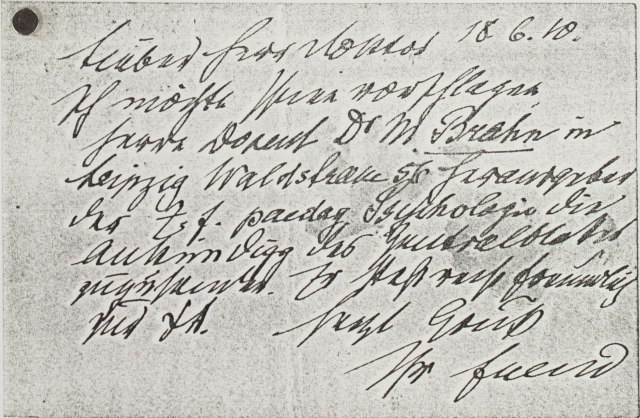 Lieber Herr Doktor 18.6.10.
Ich möchte Ihnen vorschlagen
Herrn Docent Dr M. Brahn in
Leipzig Waldstrasse Herausgeber
der Z. f. paedag Psychologie die
Ankündigg des Zentralblattes
zuzusenden. Er steht recht freundlich
Herzl Gruß
Ihr Freud